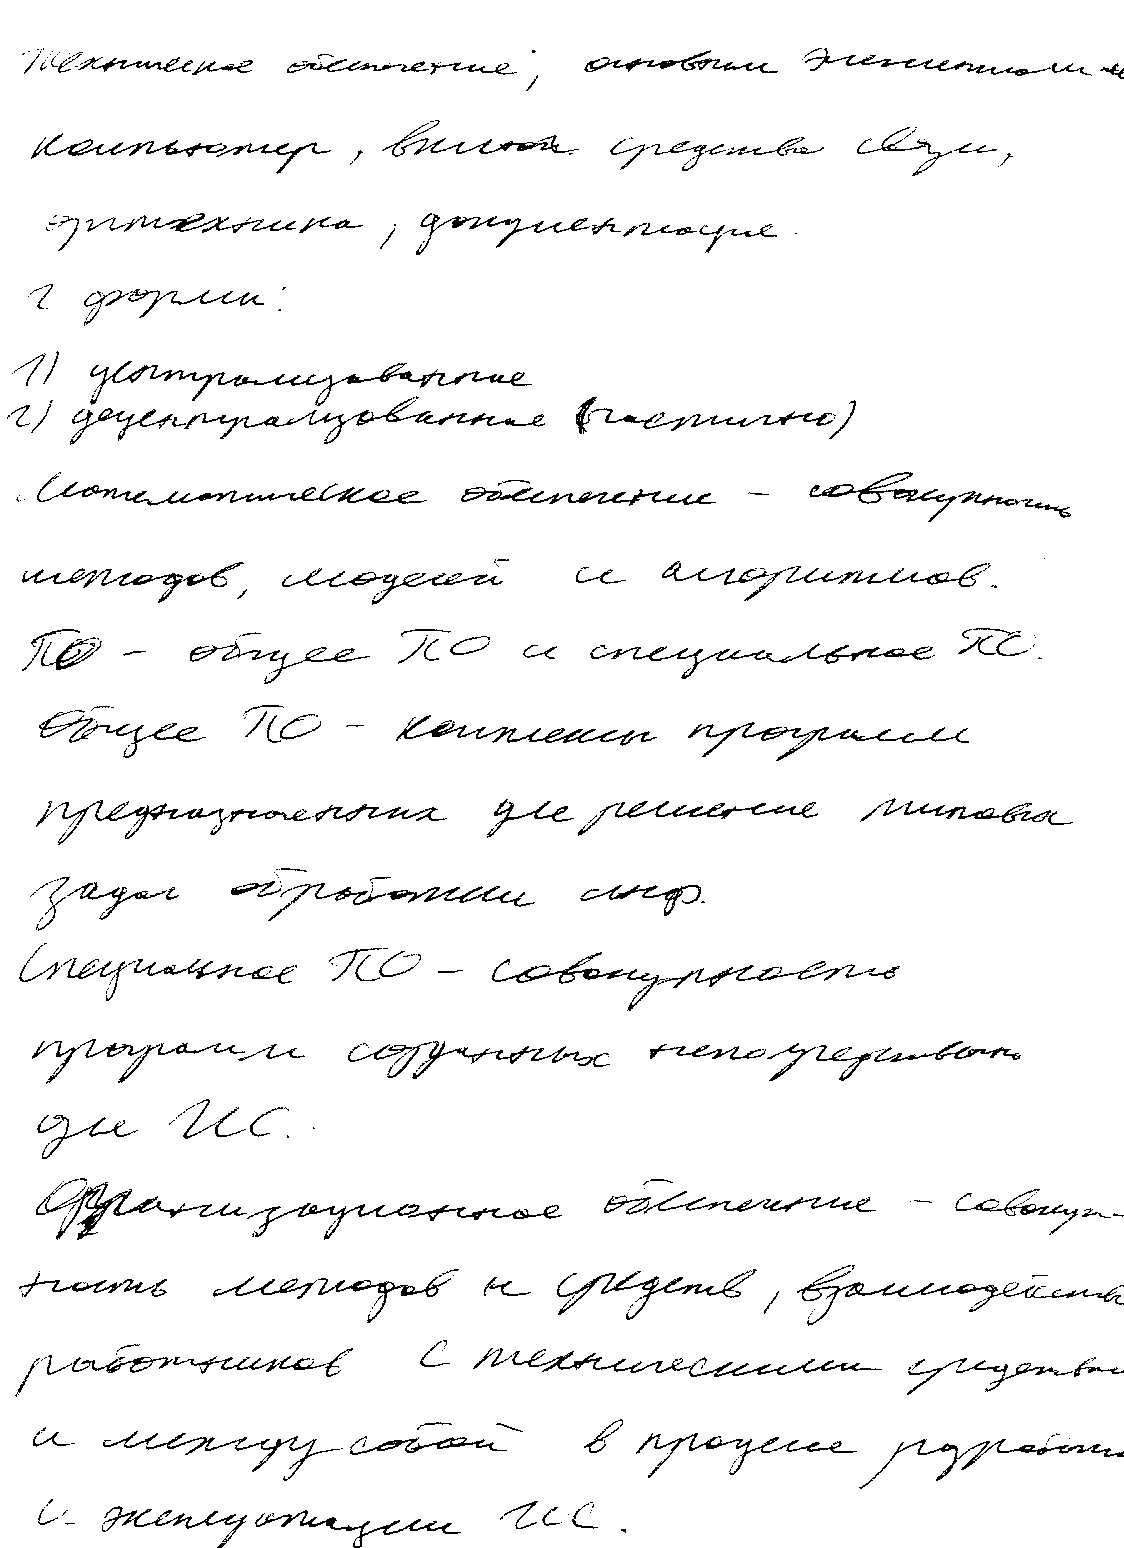 Техническое обеспечение, основным элементом
компьютер, включ. средства связи,
оргтехника, документация.
2 формы:
1) централизованные
2) децентрализованные (частично)
Математическое обеспечение – совокупность
методов, моделей и алгоритмов.
ПО – общее ПО и специальное ПО.
Общее ПО – комплексы программ
предназначенных для решение типовых
задач обработки инф.
Специальное ПО – совокупность
программ созданных непосредственно
для ИС.
Организационное обеспечение – совокуп-
ность методов и средств, взаимодейств
работников с техническими средствами
и между собой в процессе разработки
и эксплуатации ИС.